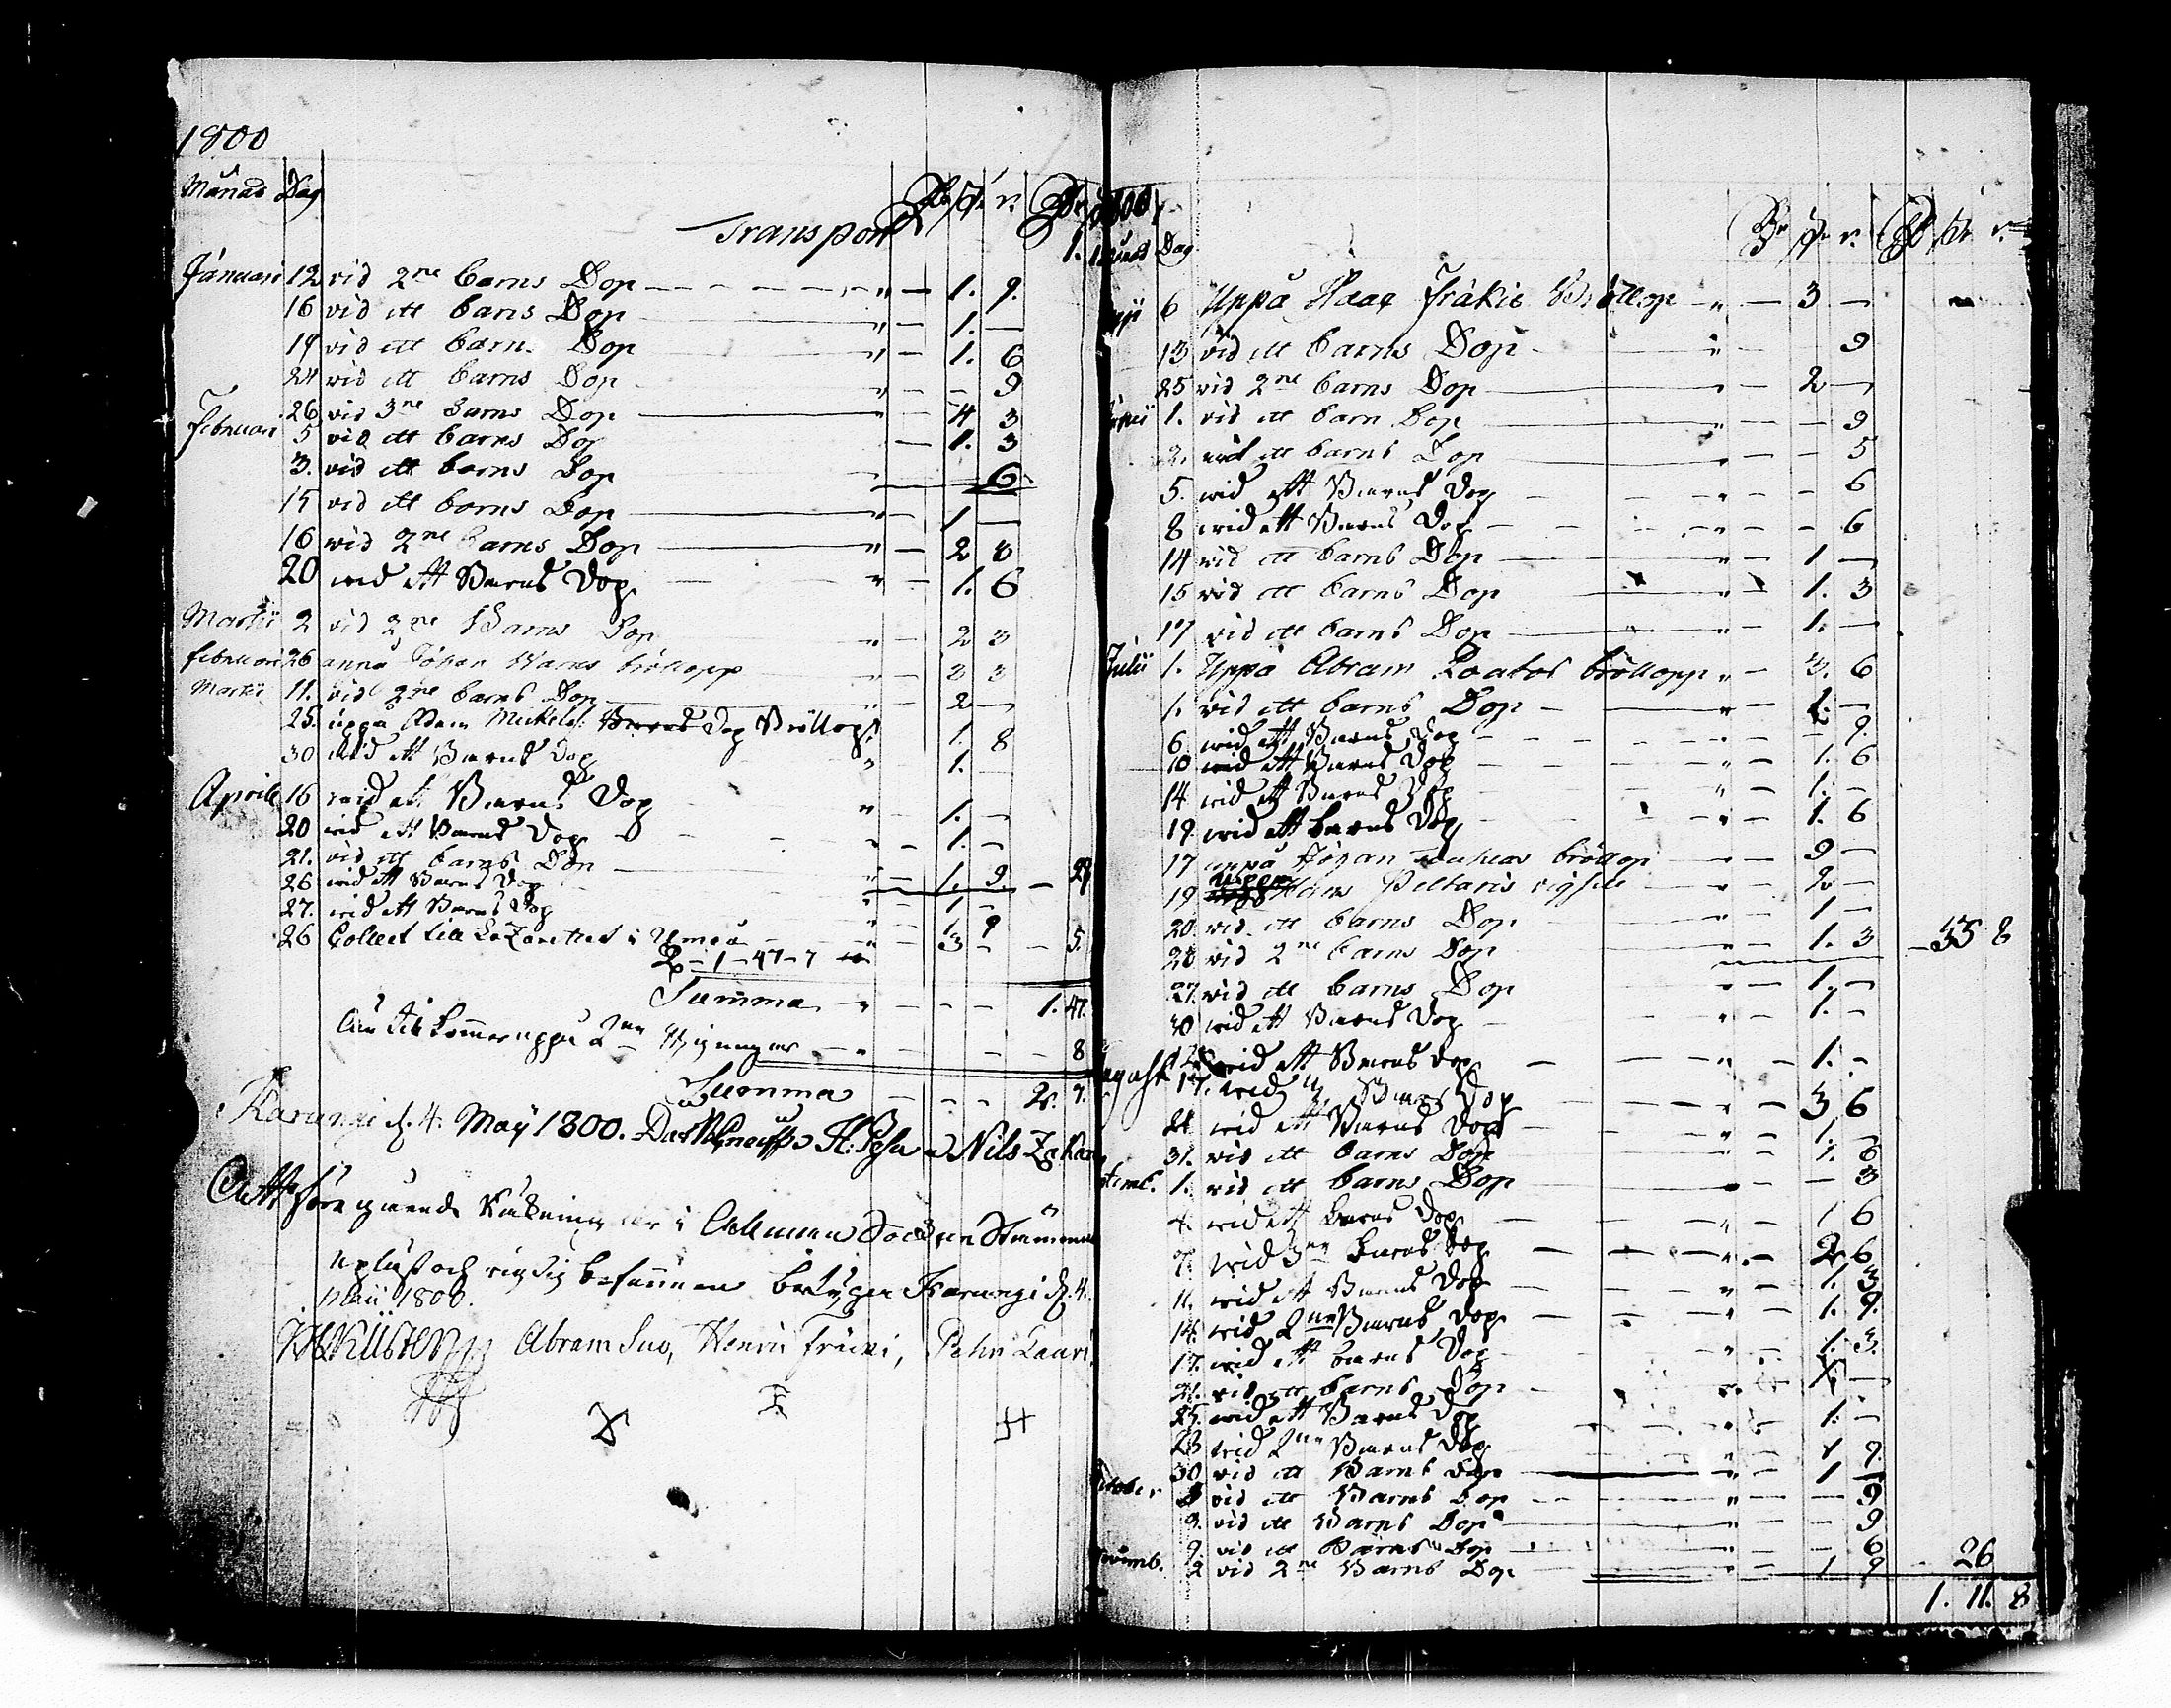 1800
Månad Dag
Transport 1.
Januari 12 vid 2ne barns Dop " — 1. 9.
16 vid ett barns Dop " — 1. —
19 vid ett barns Dop " — 1. 6
24 vid ett barns Dop " — — 9
26 vid 3ne barns Dop " — 4 3
Februari 5 vid ett barns Dop — 1. 3
3. vid ett barns Dop 6
15 vid ett barns Dop " — 1 —
16 vid 2ne barns Dop " — 2 3
20 wid ett Barns Dop " — 1. 6
Martii 2 vid 2ne Barns Dop " — 2 3
februari 26 Johan bröllopp " — 3 3
Martii 11. vid 2ne barns Dop " — 2 —
25. uppå Adam Mickels: Barns Dop Bröllop 1. 8
30 wid ett Barns Dop " 1. —
Aprill 16 wid ett Barns Dop " — 1. —
20 wid ett Barns Dop " — 1. —
21. vid ett barns Dop " — 1. 9. — 29
26 wid ett Barns Dop " 1 —
27. wid ett Barns Dop " 1. 9
26 Collect till Lazarettet i Umeå " — 3 — — 5
1 — 47 — 7
Summa " — — — 1. 47.
uppå 2ne — " — — — 8
Summa — — — 2. 7.
Karungi d. 4. May 1800. Nils
Att föregående Räkning är i Allmän Sockne Stämma
uplüst och rigtig befunnen betygar Karungi d. 4.
Maii 1800.
Abram Suo, Henric Fräki, Pehr Lauri
1800
Månad Dag
Maji 6 Uppå Fräkis Bröllop " — 3 —
13 vid ett barns Dop " — 9
25 vid 2ne barns Dop " — 2 —
Junii 1. vid ett barn Dop " — — 9
2. vid ett barns Dop " — — 5
5. wid ett Barns Dop " — — 6
8 wid ett Barns Dop " — — 6
14 vid ett barns Dop " — 1. —
15 vid ett barns Dop " 1. 3
17 vid ett barns Dop " — 1. —
Julii 1. Uppå Abram bröllopp " — 3. 6
1. vid ett barns Dop " — 1. —
6. wid ett Barns Dop " — — 9.
10 wid ett Barns Dop " — 1. 6
14 wid ett Barns Dop " — 1. —
19 wid ett barns Dop 1. 6
17 uppå Johan bröllop 9 —
19 Uppå " — 2 —
20. vid ett barns Dop " — 1 —
20 vid 2ne barns Dop " — 1. 3 — 35 8
27. vid ett barns Dop " — 1. —
30 wid ett Barns Dop " — 1. —
12 wid ett Barns Dop " — 1. —
Augusti 17. wid Barns Dop " — 3 6
24 wid ett Barns Dop " — 1. —
31. vid ett barns Dop " — 1. 6
1. vid ett barns Dop " — — 3
4. wid ett barns Dop " — 1 6
7. wid 3ne barns Dop " — 2 6
11. wid ett Barns Dop " — 1. 3
14. wid 2ne Barns Dop " — 1. 9.
17. wid ett barns Dop " — 1. 3.
21. vid ett barns Dop " 1 —
25. wid ett Barns Dop " — 1. —
28 wid 2ne Barns Dop " — 1 9
30 vid ett Barns Dop " — 1 —
October vid ett Barns Dop " — — 9
9. vid ett Barns Dop " — — 9
9. vid ett Barns Dop " — — 6
2 vid 2ne Barns Dop " — 1 9 26
1. 11. 8